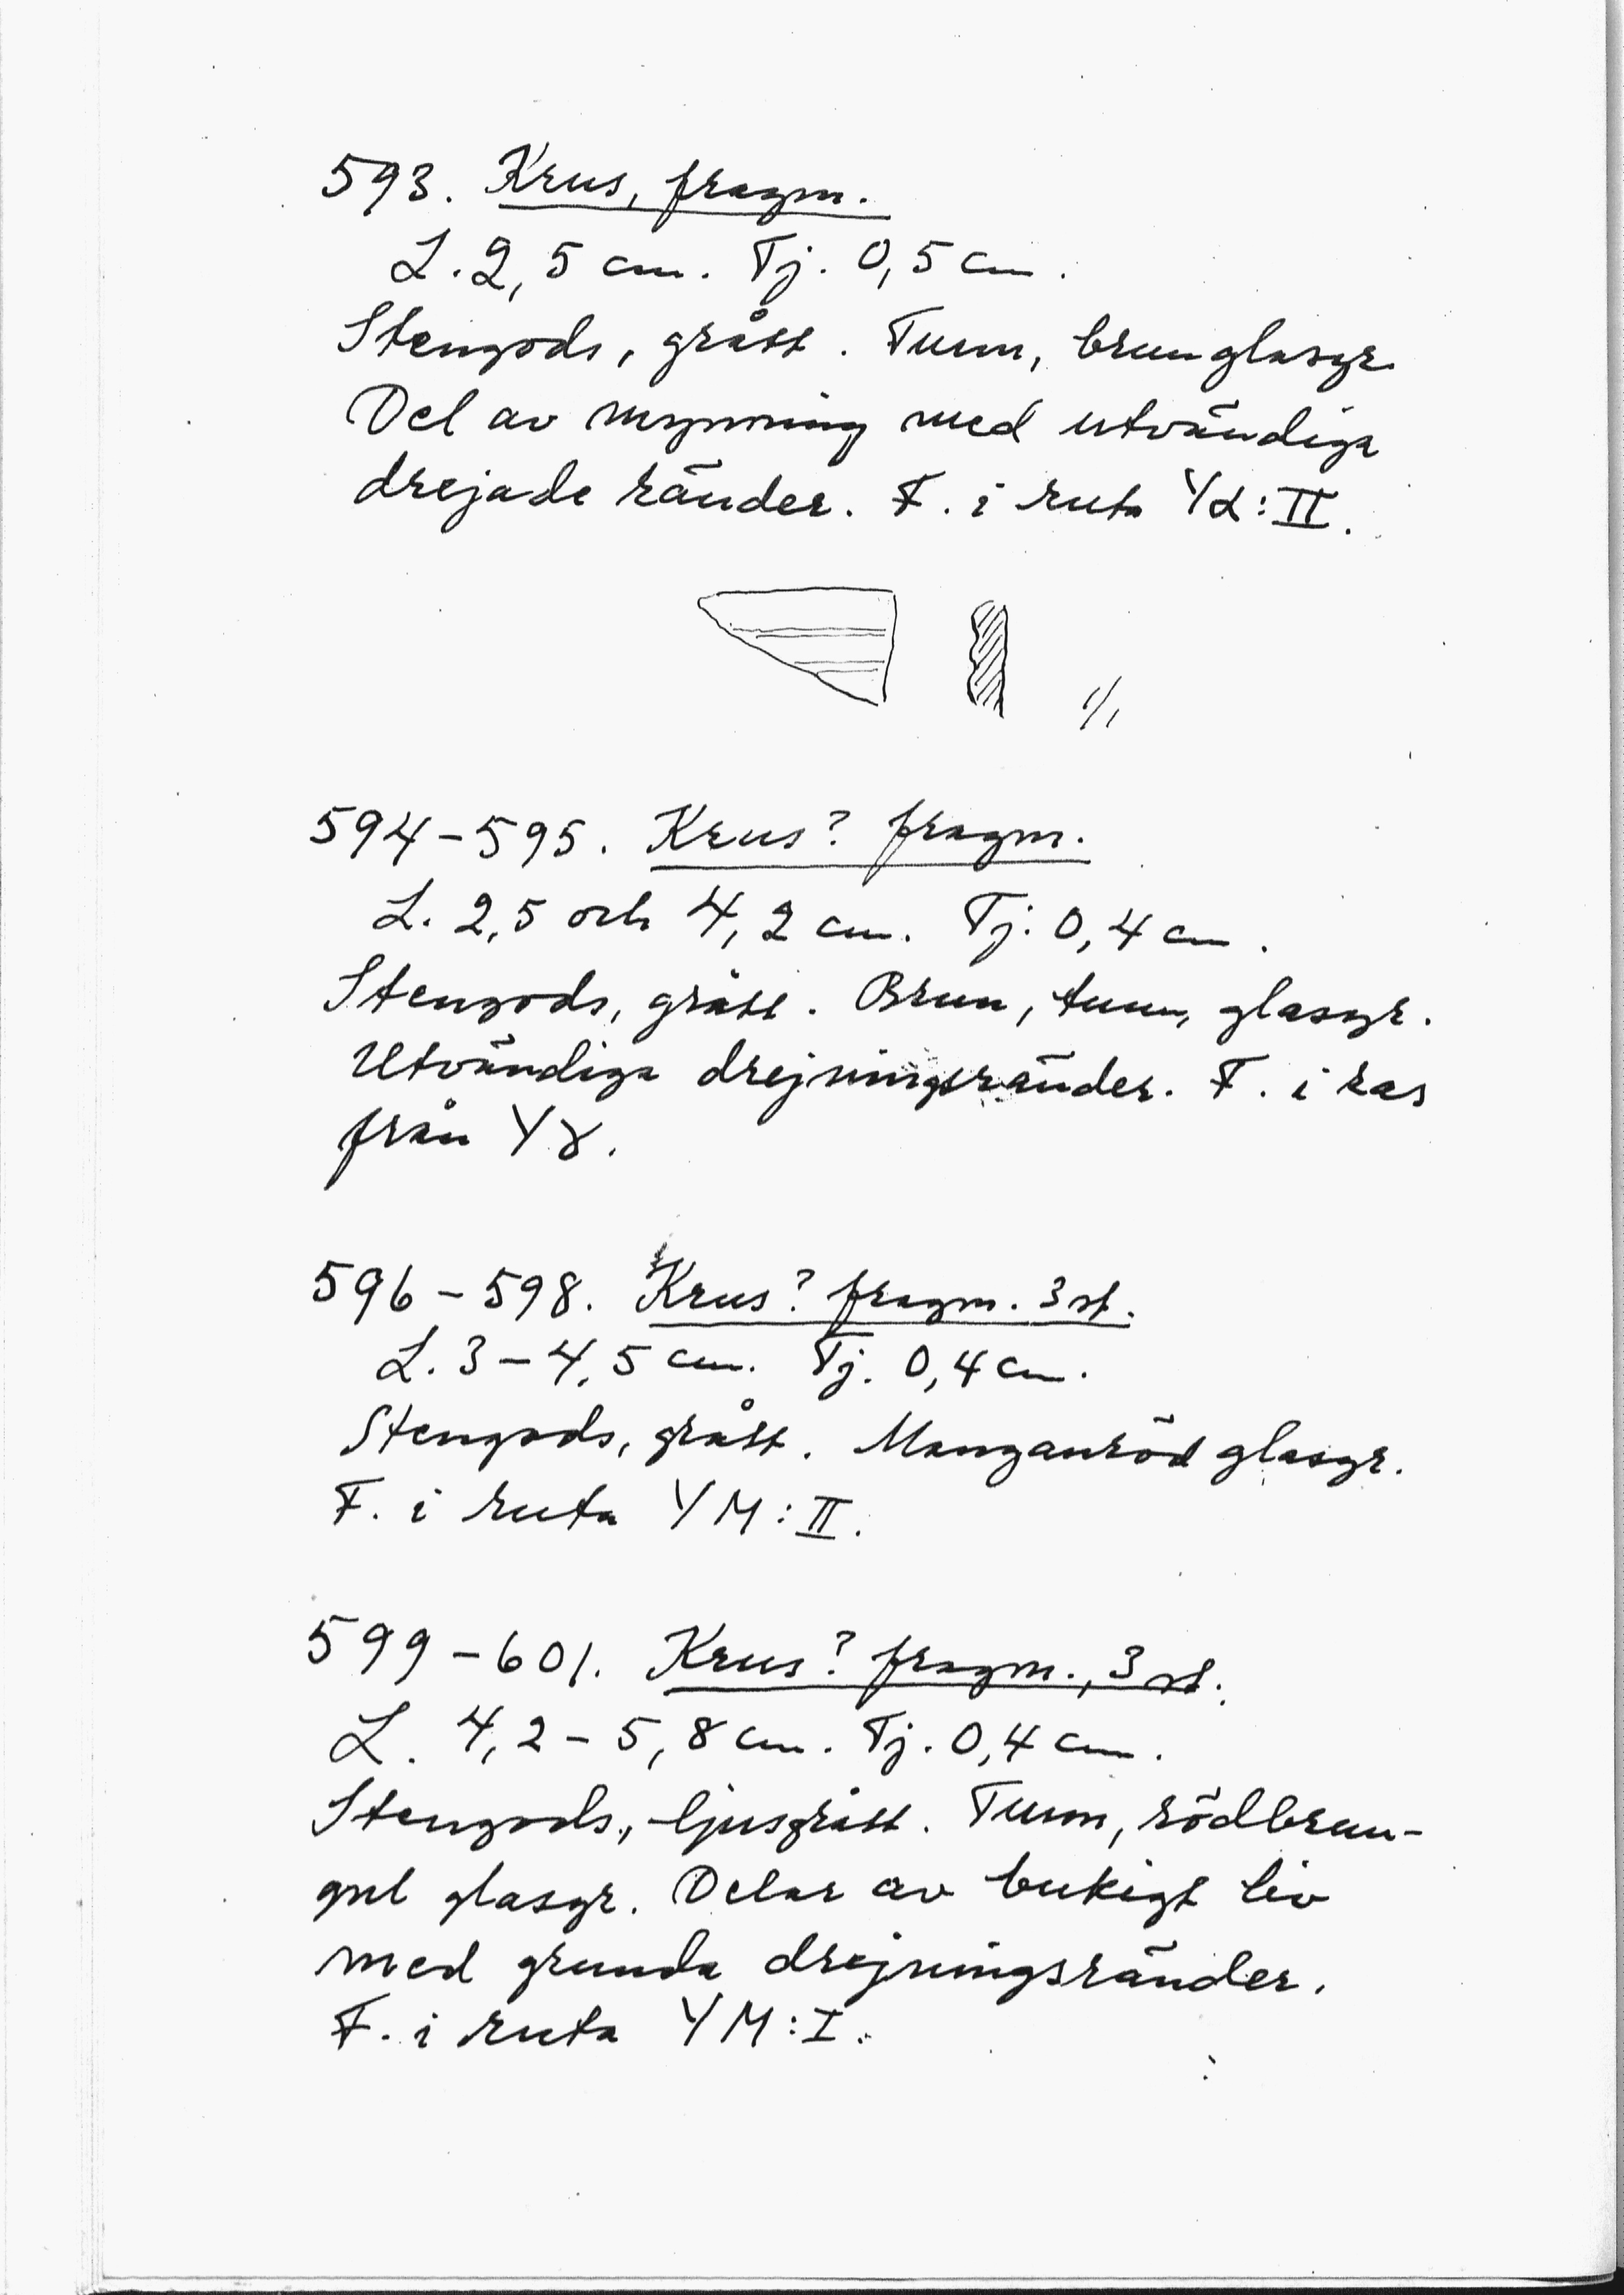 593. Krus, fragm.
L. 2,5 cm. Tj. 0,5 cm.
Stengods, grått. Tunn, brun glasyr.
Del av mynning med utvändiga
drejade ränder. F. i ruta Yα:II.
1/1
594-595. Krus? fragm.
L. 2,5 och 4,2 cm. Tj. 0,4 cm.
Stengods, grått. Brun, tunn, glasyr.
Utvändiga drejningsränder. F. i ras
från Yɣ.
596-598. Krus? fragm. 3 st.
L. 3-4,5 cm. Tj. 0,4 cm.
Stengods, grått. Manganröd glasyr.
F. i ruta YM:II.
599-601. Krus? fragm., 3 st.
L. 4,2-5,8 cm. Tj. 0,4 cm.
Stengods, ljusgrått. Tunn, rödbrun-
gul glasyr. Delar av bukigt liv
med grunda drejningsränder.
F. i ruta YM:I.